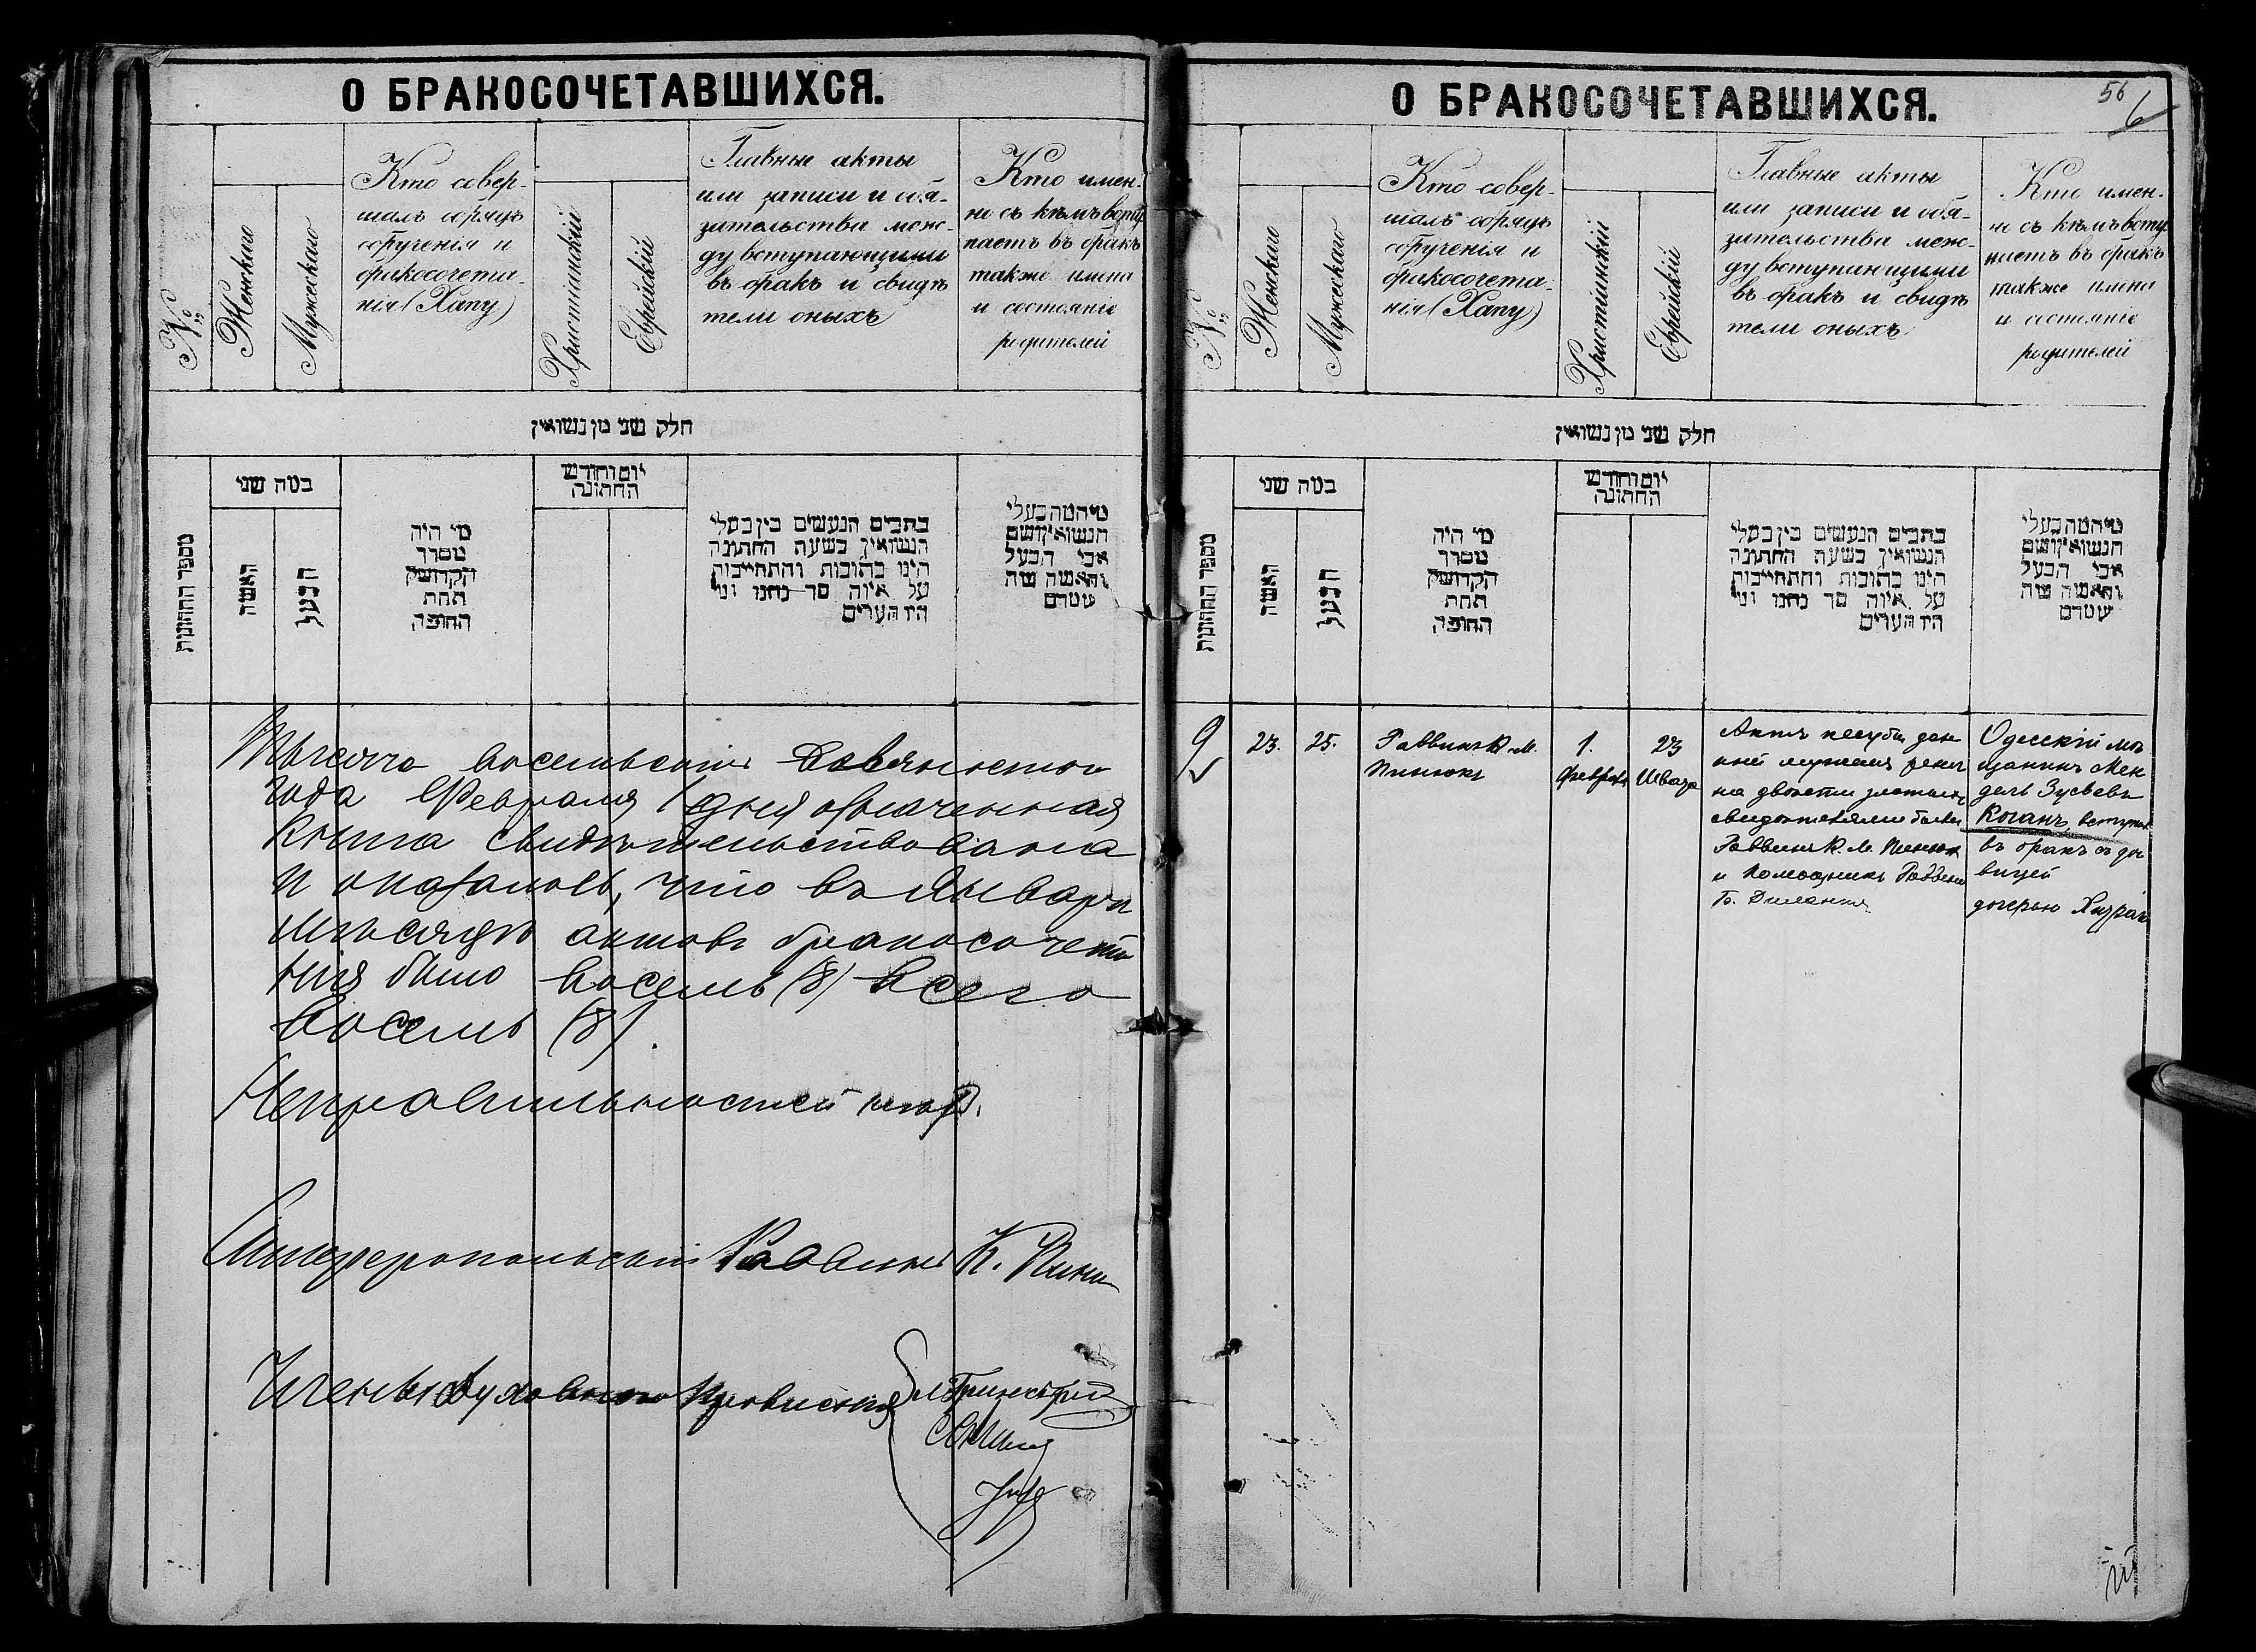 О БРАКОСОЧЕТАВШИХСЯ.
№
Женскаго
Мужескаго
Кто совер-
шалъ обрядъ
обрученія и
бракосочета-
нія (Хапу)
Христіанскій
Еврейскій
Главные акты
или записи и обя-
зательства меж-
ду вступающими
въ бракъ и свидѣ
тели оныхъ
Кто имен-
но съ кѣмъ всту
паетъ въ бракъ
также имена
и состояніе
родителей
חלק שני מן נשואין
מספר החתונות
במה שני
האשה
הבעל
מי היה
מסדר
הקדושין
תחת
החופה
יום וחודש
החתונה
כתבים הנעשים בין בעלי
הנשואין בשעת החתונה
היינו כתובות והתחייבות
על איזה סך
היו העדים
מי המה בעלי
הנשואין ושם
אבי הבעל
והאשה
Тысяча восемьсотъ девяностого
года Февраля 1 дня означенная
Книга свидѣтельствована
и оказалось, что въ Январѣ
мѣсяцѣ актовъ бракосочета
нія было восемь (8) всего
восемь (8).
Неправильностей нѣтъ.
Симферопольскій Раввинъ К. Пинюкъ
Члены духовного правленія
О БРАКОСОЧЕТАВШИХСЯ.
56
6
№
Женскаго
Мужескаго
Кто совер-
шалъ обрядъ
обрученія и
бракосочета-
нія (Хапу)
Христіанскій
Еврейскій
Главные акты
или записи и обя-
зательства меж-
ду вступающими
въ бракъ и свидѣ
тели оныхъ
Кто имен-
но съ кѣмъ всту
паетъ въ бракъ
также имена
и состояніе
родителей
חלק שני מן נשואין
מספר החתונות
במה שני
האשה
הבעל
מי היה
מסדר
הקדושין
תחת
החופה
יום וחודש
החתונה
כתבים הנעשים בין בעלי
הנשואין בשעת החתונה
היינו כתובות והתחייבות
על איזה סך
היו העדים
מי המה בעלי
הנשואין ושם
אבי הבעל
והאשה
9
23.
25.
Раввинъ К. М.
Пинюкъ
1.
Февраля
23
Шватъ
Актъ кесуба дан
ный мужемъ
на двѣсти злотыхъ
свидѣтелями были
Раввинъ К. М. Пинюк
и помощникъ Раввина
Б.
Одесскій мѣ
щанинъ Мен
дель Зусьевъ
Коганъ, вступил
въ бракъ съ дѣ
вицей
дочерью